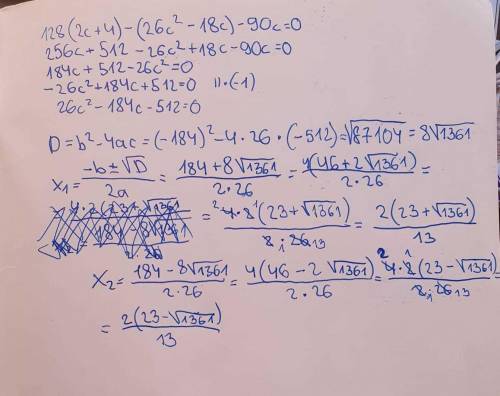 128(2c+4)-(26c²-18c)-90c=0
256c+512-26c²+18c-90c=0
184c+512-26c²=0
-26c²+184c+512=0 ||·(-1)
26c²-184c-512=0
D=b²-4ac=(-184)²-4·26·(-512)=√87104=8√1361
x₁=(-b±√D)/2a=(184+8√1361)/(2·26)=4(46+2√1361)/(2·26)=
=4·8(23+√1361)/(8·26)=2(23+√1361)/13
x₂=(184-8√1361)/(2·26)=4(46-2√1361)/(2·26)=4·8(23-√1361)/(8·26)=
=2(23-√1361)/13